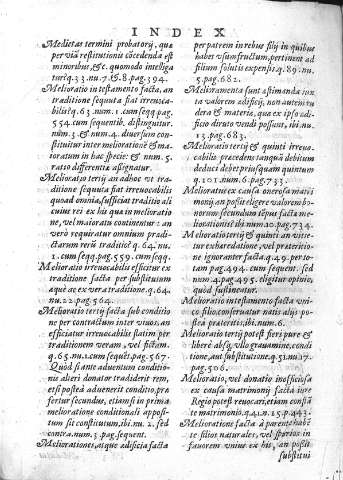 INDEX
Medietas termini probatorij, quæ
per viã restitutionis cõcedenda est
minoribus, &c. quomodo intelliga
tur. q. 33. nu. 7. & 8. pag. 394.
Melioratio in testamento facta, an
traditione sequuta fiat irreuoca-
bilis? q. 63. num. 1. cum seqq. pag.
554. cum sequentib. distinguitur.
num. 3. & num. 4. diuersum con-
stituitur inter meliorationẽ & ma-
ioratum in hac specie: & num. 5.
rato differentiæ assignatur.
Melioratio tertij an adhoc vt tra-
ditione sequuta fiat irreuocabilis
quoad omnia, sufficiat traditio ali
cuius rei ex his qua in melioratio
ne, vel maioratu continentur: an
vero requiratur omnium prædi-
ctarum rerũ traditio? q. 64. nu.
1. cum seqq. pag. 559. cum seqq.
Melioratio irreuocabilis efficitur ex
traditione facta per substitutum
æque ac ex vera traditione. q. 64.
nu. 22. pag. 564.
Melioratio tertij facta sub conditio
ne per contractum inter viuos, an
efficiatur irreuocabilis statim per
traditionem veram, vel fictam.
q. 65. nu. 1. cum sequẽt. pag. 567.
Quod si ante aduentum conditio-
nis alteri donator tradiderit rem,
etsi postea aduenerit conditio, præ
fertur secundus, etiamsi in prima
melioratione conditionali apposi-
tum sit constitutum, ibi. nu. 2. sed
contra. num. 3. pag. sequent.
Meliorationes, atque ædificia facta
per patrem in rebus filij in quibus
habet vsum fructum, pertinent ad
filium solutis expensis. q. 89. nu.
5. pag. 682.
Melioramenta sunt æstimanda iux
ta valorem ædificij, non autem tu
dera & materia, quæ ex ipso ædi-
ficio diruto vendi possunt, ibi. nu.
13. pag. 683.
Melioratio tertij & quinti irreuo-
cabilis præcedens tanquã debitum
deduci debet prius quam quintum
q. 10. num. 6. pag. 733.
Melioratus ex causa onerosa matri
monij an possit eligere valorem bo-
norum secundum tẽpus factæ me-
liorationis? ibi num. 10. pag. 734.
Melioratio tertij & quinti an vitie-
tur exhæredatione, vel præteritio-
ne ignoranter facta. q. 49. per to-
tam pag. 494. cum sequent. sed
num. 4. pag. 495. eligitur opinio,
quod sustineatur.
Melioratio in testamento facta vni-
co filio, conseruatur natis alijs po-
stea præteritis, ibi. num. 6.
Melioratio tertij potest fieri pure &
libere absq; vllo grauamine, condi
tione, aut substitutione. q. 53. nu. 17.
pag. 506.
Melioratio, vel donatio inofficiosa
ex causa matrimonij facta iure
Regio potest reuocari, etiam constã
te matrimonio. q. 41. n. 25. p. 443.
Melioratione facta à parente habẽ
te filios naturales, vel spurios in
fauorem vnius ex his, an possit
substitui